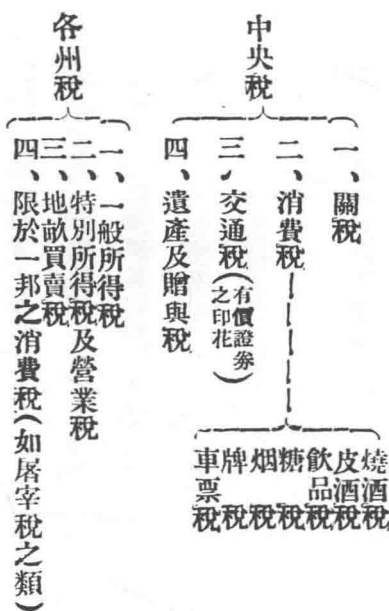 中央稅
一、關稅
二、消費稅
燒酒稅
皮酒稅
飲品稅
糖稅
烟稅
牌稅
車票稅
三、交通稅(有價證券之印花)
四、遺產及贈與稅
各州稅
一、一般所得稅
二、特別所得稅及營業稅
三、地畝買賣稅
四、限於一邦之消費稅(如屠宰稅之類)